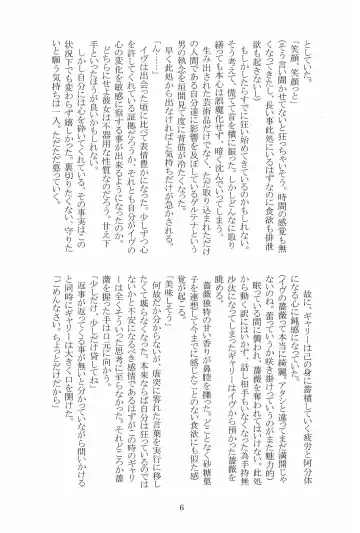 としていた。
「笑顔、笑顔っと」
（そう言い聞かせてないと狂っちゃいそう。時間の感覚も無
くなってきたし、長い事此処にいるはずなのに食欲も排泄
欲も起きない）
もしかしたらすでに狂い始めてきているのかもしれない。
そう考えて、慌てて首を横に振った。しかしどんなに取り
繕っても本心は誤魔化せず、暗く沈んでいってしまう。
生み出された芸術品だけでなく、ただ取り込まれただけ
の人間である自分達に影響を及ぼしているゲルテナという
男の執念を垣間見て度に背筋が冷たくなった。
早く此処から出なければと気持ちだけが急かされる。
「ん……」
イヴは出会った頃に比べて表情豊かになった。少しずつ心
を許してくれている証拠だろうか、それとも自分がイヴの
心の変化を敏感に察する事が出来るようになったのか。
どちらにせよ彼女は不器用な性質なのだろう。甘え下
手といったほうが良いかもしれない。
しかし自分には心を砕いてくれている。その事実はこの
状況下でも変わらず嬉しかった。裏切りたくない、守りた
いと願う気持ちは一人、ただただ募っていく。
故に、ギャリーは己自身に蓄積していく疲労と何分体
になる心に鈍感になっていた。
（イヴの薔薇って本当に綺麗。アタシと違ってまだ満開じゃ
ないのね。蕾っていうか咲き掛けっていうのがまた魅力的）
眠っている間に襲われ、薔薇を奪われてはいけない。此処
から動く訳にはいかず、話し相手もいなくなった為手持無
沙汰になってしまったギャリーはイヴから預かった薔薇を
眺める。
薔薇独特の甘い香りが鼻腔を擽った。どことなく砂糖菓
子を連想して今までに感じたことのない食欲にも似た感
覚が起こる。
「美味しそう」
何故だか分からないが、唐突に零れた言葉を実行に移し
たくて堪らなくなった。本来ならば自分は狂っているのでは
ないかと不安になるべき感情であるはずがこの時のギャリ
ーは全くそういった思考に至らなかった。それどころか薔
薇を握った手は口元に向かう。
「少しだけ、少しだけ貸してね」
返事が返ってくる事が無いと分かっていながら問いかける
と同時にギャリーは大きく口を開けた。
「ごめんなさい。ちょっとだけだから」
6